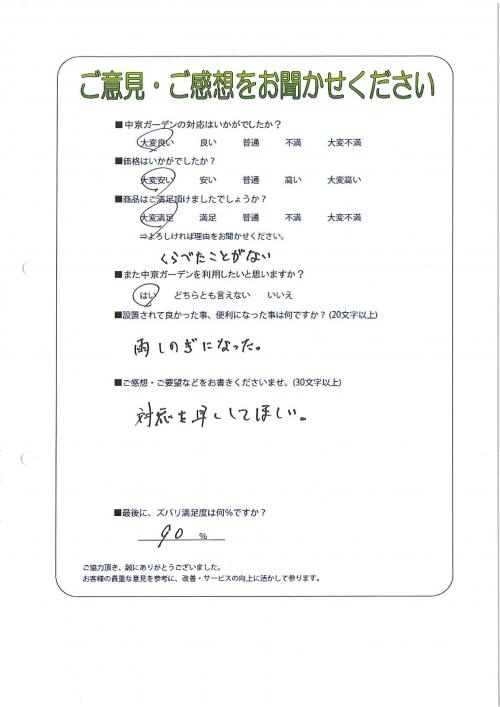 ご意見・ご感想をお聞かせください
■中京ガーデンの対応はいかがでしたか？
大変良い 良い 普通 不満 大変不満
■価格はいかがでしたか？
大変安い 安い 普通 高い 大変高い
■商品はご満足頂けましたでしょうか？
大変満足 満足 普通 不満 大変不満
⇒よろしければ理由をお聞かせください。
くらべたことがない
■また中京ガーデンを利用したいと思いますか？
はい どちらとも言えない いいえ
■設置されて良かった事、便利になった事は何ですか？(20文字以上)
雨しのぎになった。
■ご感想・ご要望などをお書きくださいませ。(30文字以上)
対応を早くしてほしい。
■最後に、ズバリ満足度は何％ですか？
90 ％
ご協力頂き、誠にありがとうございました。
お客様の貴重な意見を参考に、改善・サービスの向上に活かして参ります。